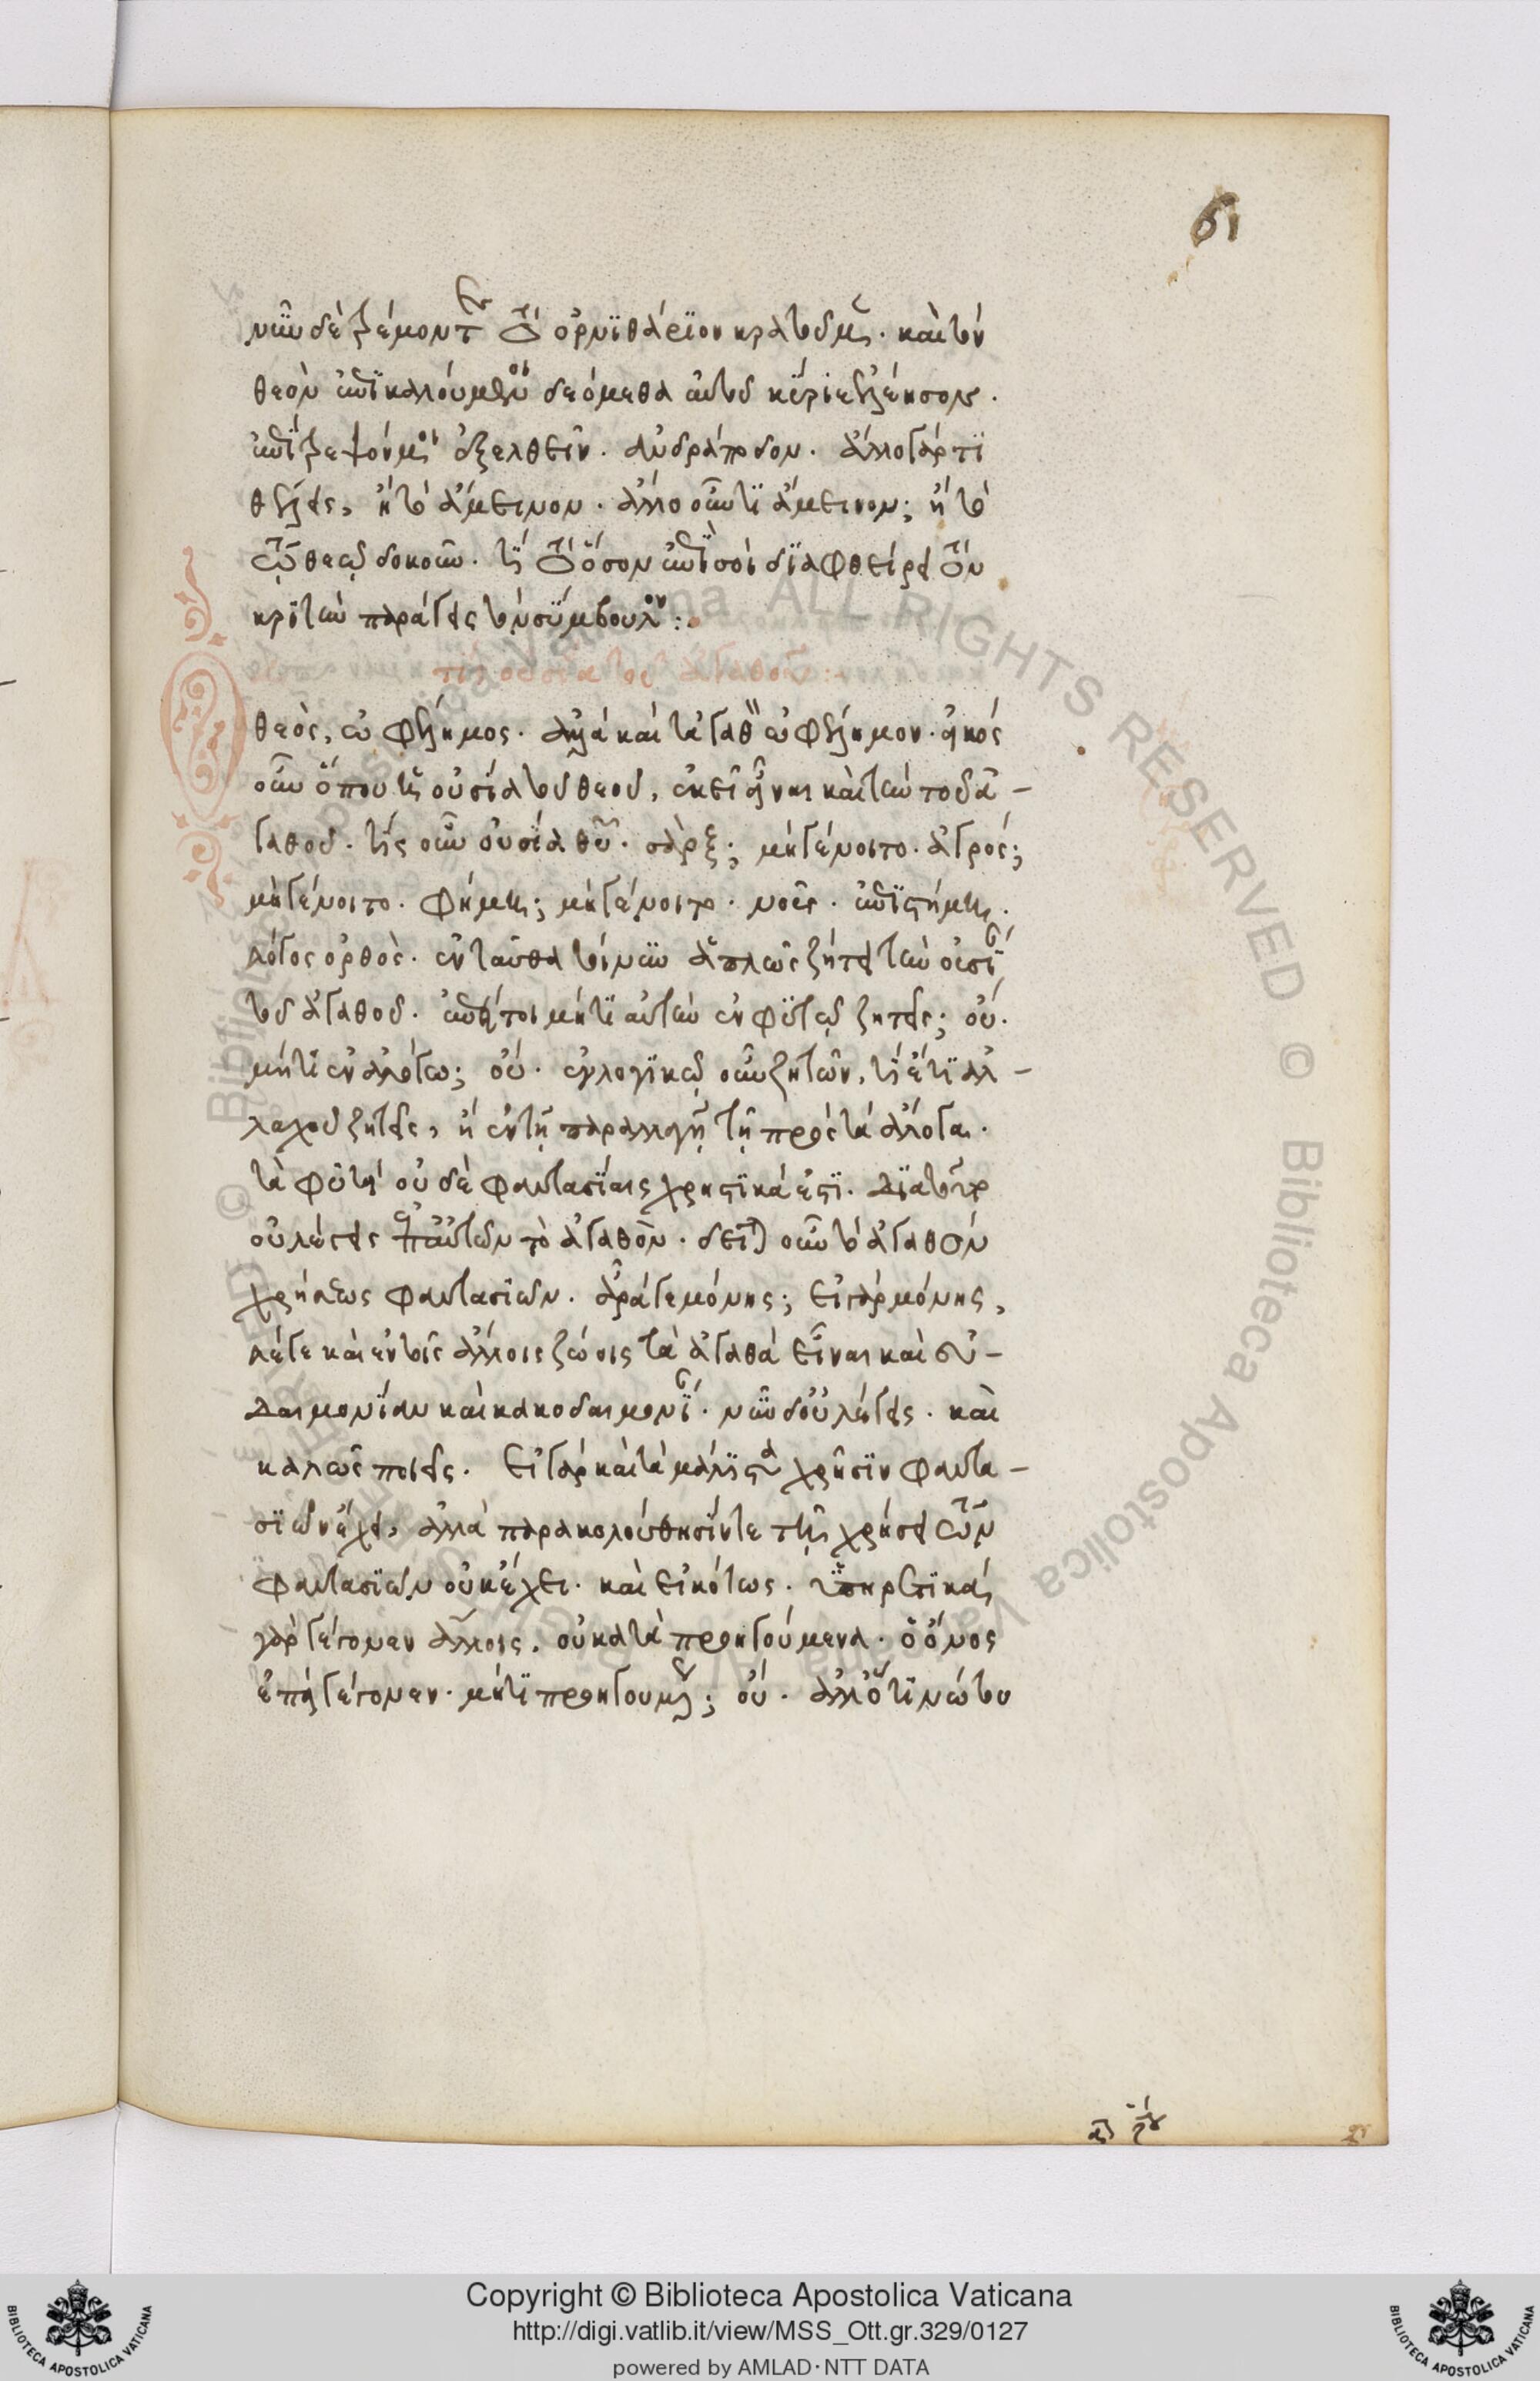 61
νῦν δὲ τρέμοντες τὸ ὀρνιθάριον κρατοῦμεν. καὶ τὸν
θεὸν ἐπικαλούμενοι δεόμεθα αὐτοῦ κύριε ἐλέησον.
ἐπίτρεψόν μοι ἐξελθεῖν. ἀνδράποδον. ἄλλο γάρ τι
θέλεις, ἢ τὸ ἄμεινον. ἄλλο οὖν τι ἄμεινον; ἢ τὸ
τῷ θεῷ δοκοῦν. τί τὸ ὅσον ἐπὶ σοὶ διαφθείρεις τὸν
κριτὴν παράγεις τὸν σύμβουλον:.
τίς οὐσία τοῦ ἀγαθοῦ:
θεὸς, ὠφέλιμος. ἀλλὰ καὶ τἀγαθὸν ὠφέλιμον. εἰκός
οὖν ὅπου ἡ οὐσία τοῦ θεοῦ, ἐκεῖ εἶναι καὶ τὴν τοῦ ἀ-
γαθοῦ. τίς οὖν οὐσία θεοῦ. σάρξ; μὴ γένοιτο. ἀγρός;
μὴ γένοιτο. φήμη; μὴ γένοιτο. νοῦς. ἐπιστήμη.
λόγος ὀρθός. ἐνταῦθα τοίνυν ἁπλῶς ζήτει τὴν οὐσίαν
τοῦ ἀγαθοῦ. ἐπεί τοι μή τι αὐτὴν ἐν φυτῷ ζητεῖς; οὔ.
μή τι ἐν ἀλόγῳ; οὔ. ἐν λογικῷ οὖν ζητῶν, τί ἔτι ἀλ-
λαχοῦ ζητεῖς, ἢ ἐν τῇ παραλλαγῇ τῇ πρὸς τὰ ἄλογα.
τὰ φυτὰ οὐδὲ φαντασίαις χρηστικά ἐστι. διὰ τοῦτο
οὐ λέγεις ἐπ' αὐτῶν τὸ ἀγαθόν. δεῖται οὖν τὸ ἀγαθὸν
χρήσεως φαντασιῶν. ἆρά γε μόνης; εἰ γὰρ μόνης,
λέγε καὶ ἐν τοῖς ἄλλοις ζώοις τὰ ἀγαθὰ εἶναι καὶ εὐ-
δαιμονίαν καὶ κακοδαιμονίαν. νῦν δ' οὐ λέγεις. καὶ
καλῶς ποιεῖς. εἰ γὰρ καὶ τὰ μάλιστα χρῆσιν φαντα-
σιῶν ἔχει, ἀλλὰ παρακολούθησίν γε τῇ χρήσει τῶν
φαντασιῶν οὐκ ἔχει. καὶ εἰκότως. ὑπηρετικὰ
γὰρ γέγονεν ἄλλοις, οὐκ αὐτὰ προηγούμενα. ὁ ὄνος
ἐπεὶ γέγονεν. μή τι προηγουμένως; οὔ. ἀλλ' ὅτι νώτου
Copyright © Biblioteca Apostolica Vaticana
http://digi.vatlib.it/view/MSS_Ott.gr.329/0127
powered by AMLAD·NTT DATA